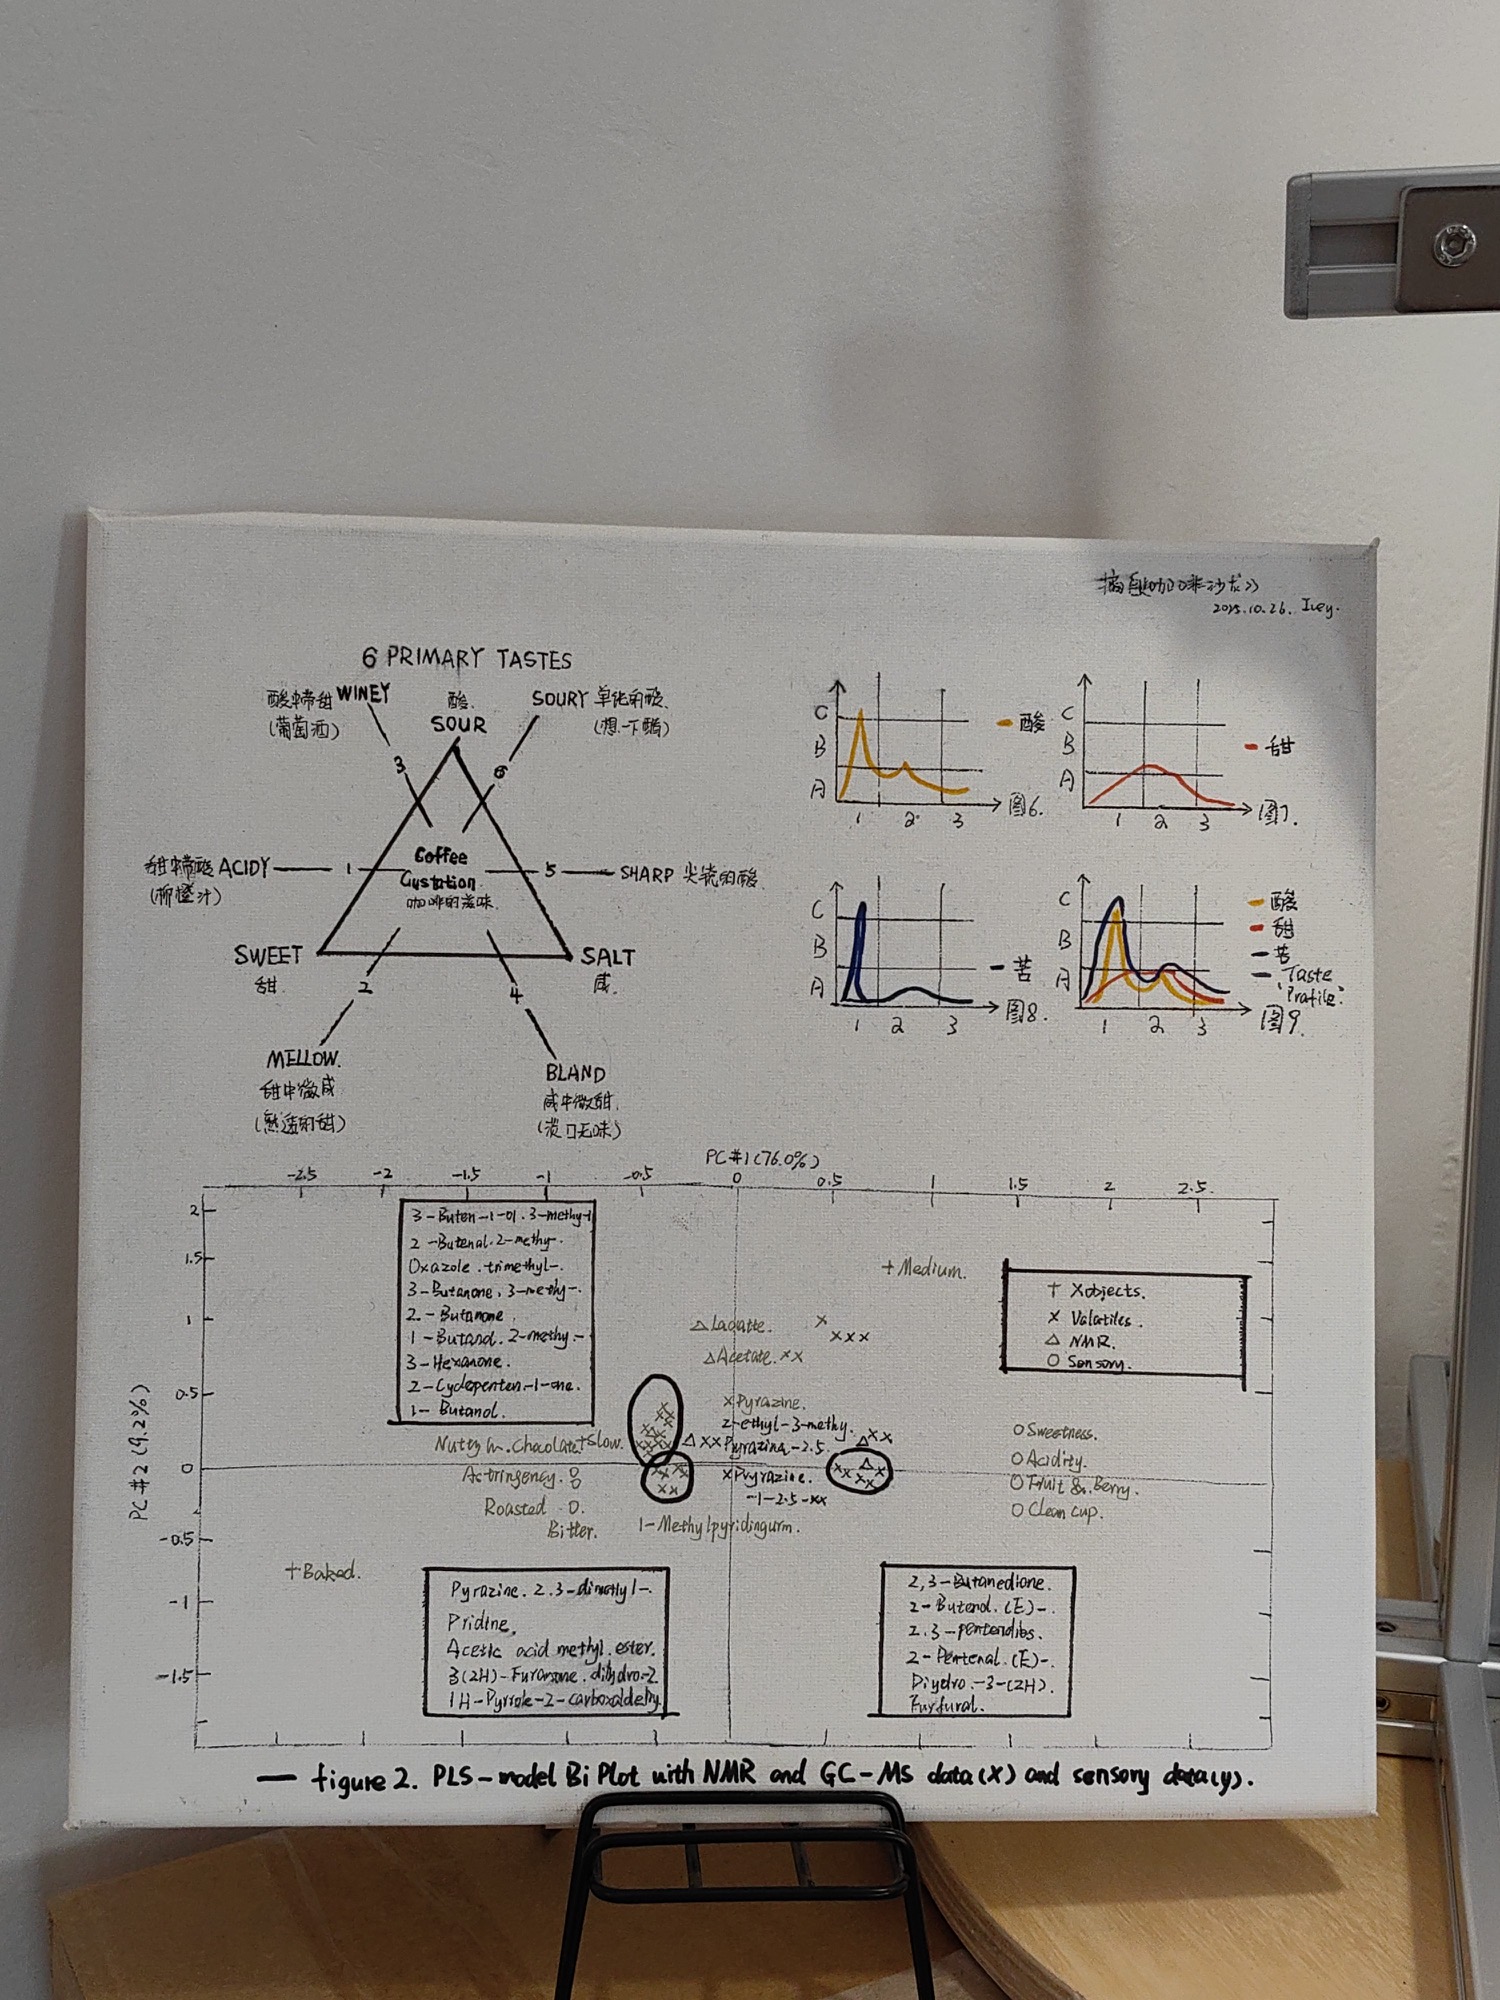 摘自《咖啡沙龙》
2025.10.26. Ivey.
6 PRIMARY TASTES
酸中带甜 WINEY
(葡萄酒)
酸.
SOUR
SOURY 单纯的酸.
(想一下醋)
3
6
甜中带酸 ACIDY
(柳橙汁)
1
Coffee
Gustation
咖啡的滋味.
5
SHARP 尖锐的酸
SWEET
甜
SALT
咸.
2
4
MELLOW.
甜中微咸
BLAND
咸中微甜.
(淡口无味)
C
B
A
1 2 3
酸
图6.
C
B
A
1 2 3
甜
图7.
C
B
A
1 2 3
苦
图8.
C
B
A
1 2 3
酸
甜
苦
Taste
Profile
图9.
PC#1(76.0%)
-2.5 -2 -1.5 -1 -0.5 0 0.5 1 1.5 2 2.5
PC#2(9.2%)
2
1.5
1
0.5
0
-0.5
-1
-1.5
3-Buten-1-ol.3-methy-1
2-Butenal.2-methy-.
Oxazole.trimethyl-.
3-Butanone,3-methy-.
2.-Butanone
1-Butanol.2-methy.-
3-Hexanone.
2-Cyclopenten-1-one.
1-Butanol.
+Medium.
+ Xobjects.
x Valatiles.
△ NMR.
O Sensory.
△Lacatte.
△Acetate.xx
xPyrazine.
2-ethyl-3-methy.
△xxPyrazina-2.5.
xPyrazine.
-1-2.5-xx
Nutty &. Chocolate
+Slow.
Astringency.
Roasted O.
Bitter.
1-Methylpyridingurm.
O Sweetness.
O Acidity.
O Fruit &. Berry.
O Clean cup.
+Baked.
Pyrazine.2.3-dimethyl-.
Pridine,
Acetic acid methyl.ester.
3(2H)-Furanone.dihydro-2
1H-Pyrrole-2-carboxaldehy.
2,3-Butanedione.
2-Butenol.(E)-.
2-Pentenal.(E)-.
Diydro.-3-(2H).
Furfural.
— figure 2. PLS-model Bi Plot with NMR and GC-MS data(X) and sensory data(y).